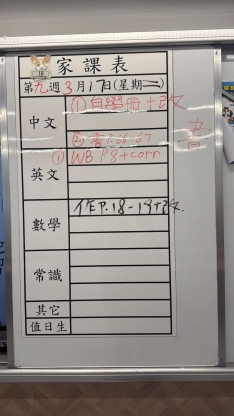 家課表
第九週3月17日(星期二)
中文
(1)自學冊+改
(2)書P.66-67
書
英文
(1) WB P.8+corr
數學
作P.18-19+改.
常識
其它
值日生